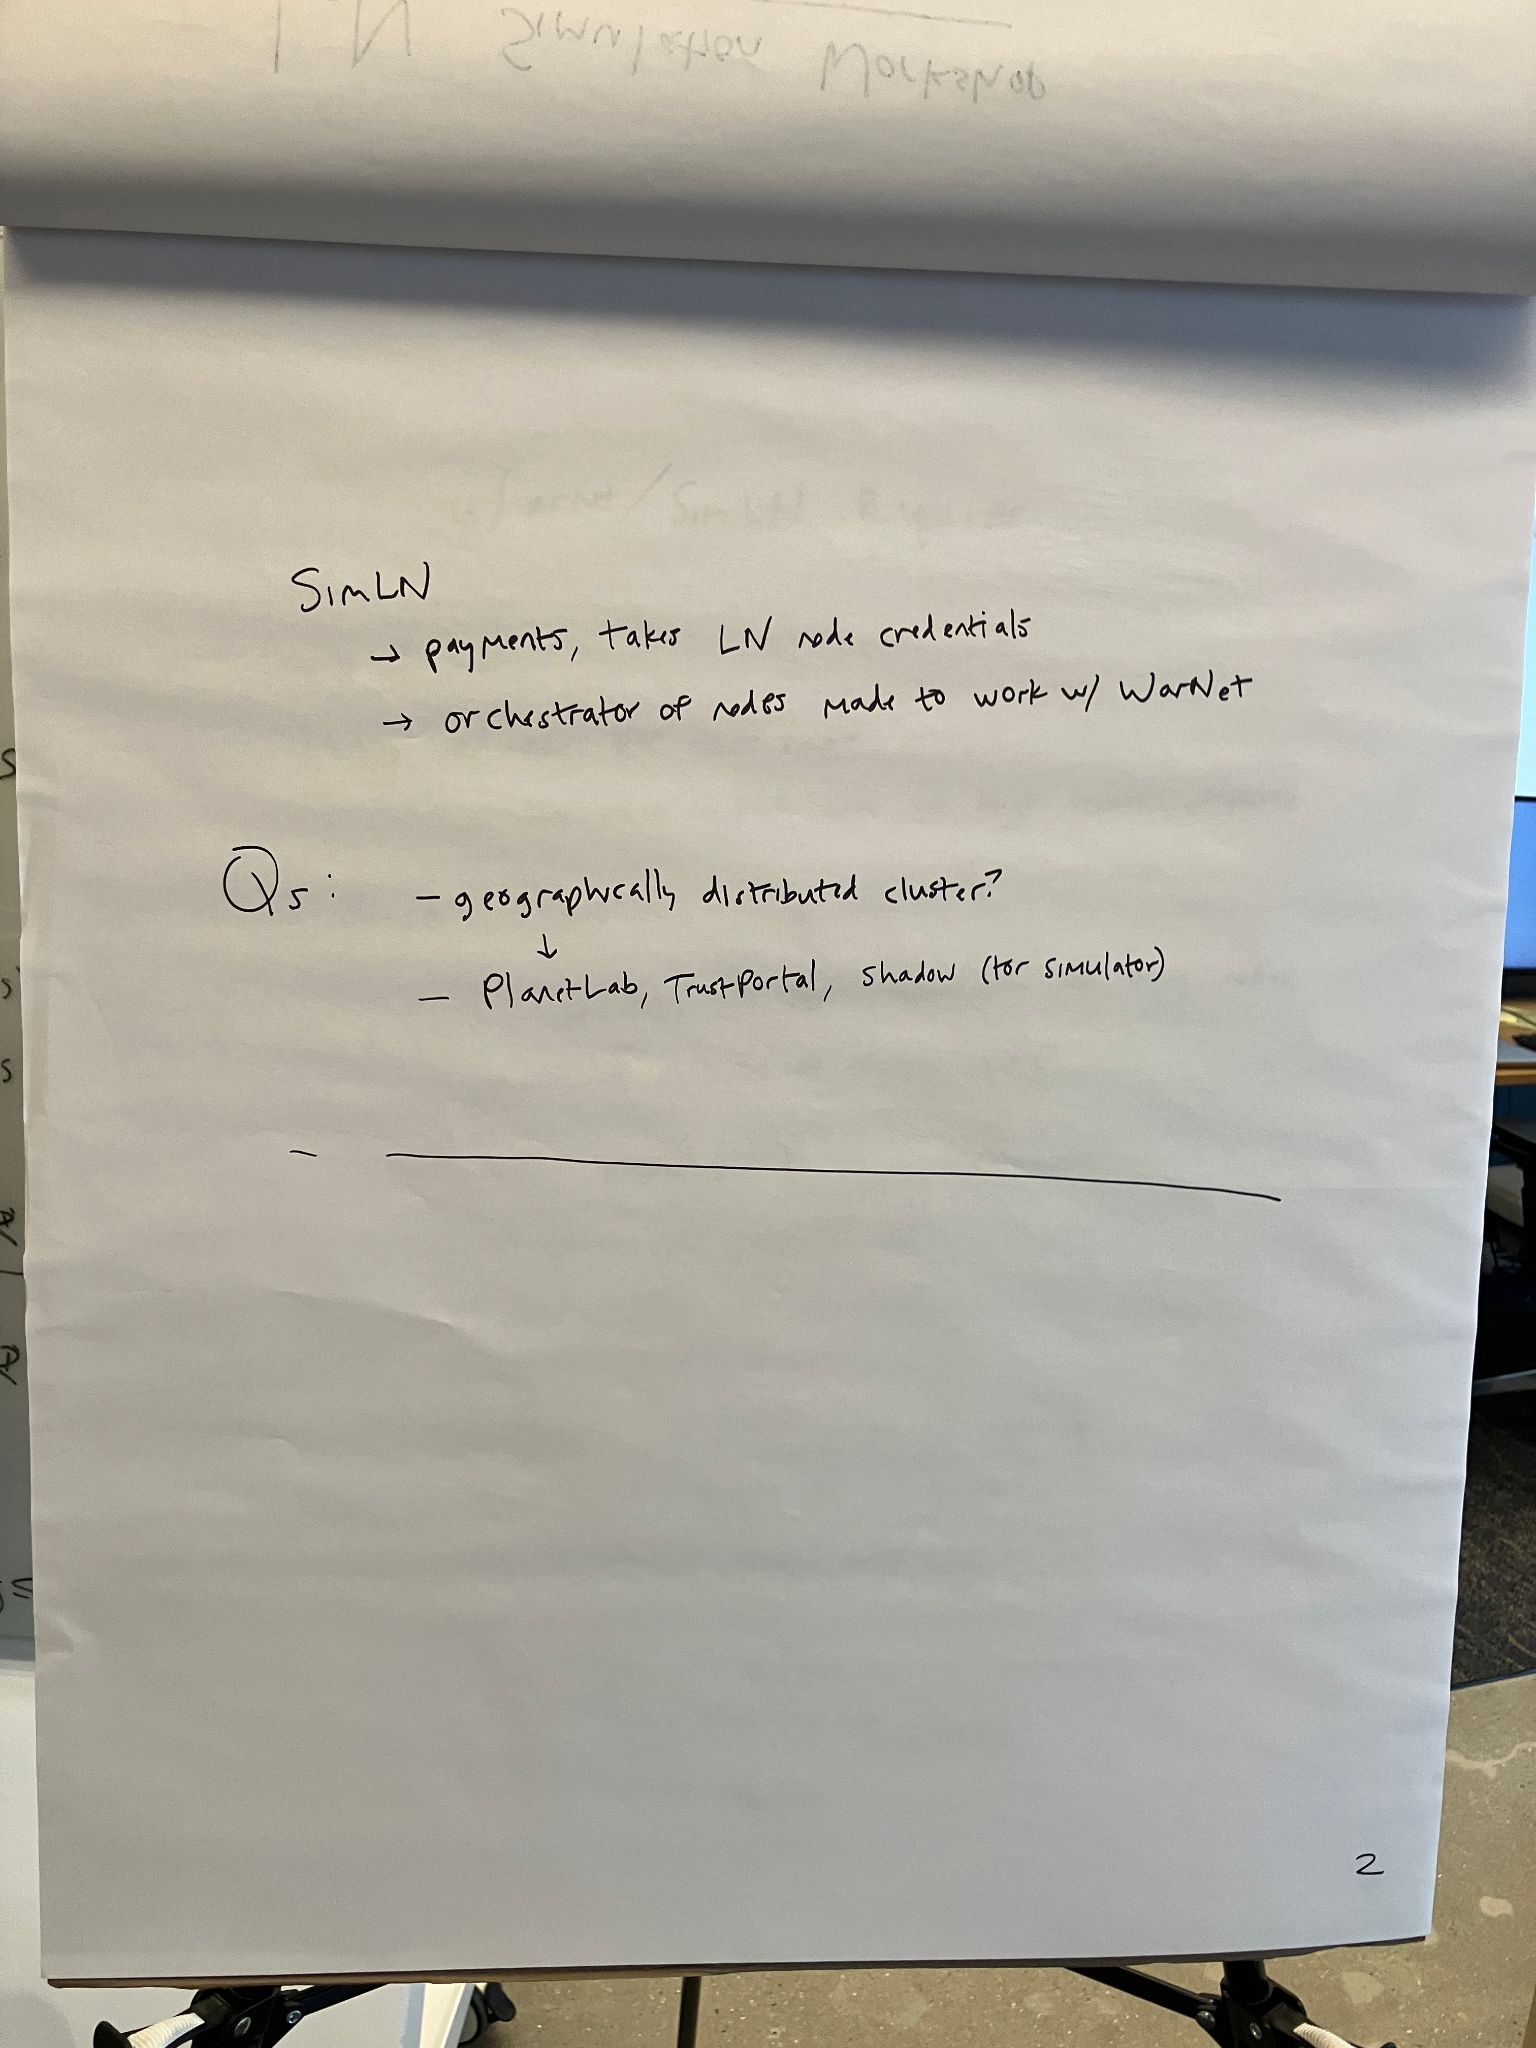 LN Simulation Workshop
SimLN
→ payments, takes LN node credentials
→ orchestrator of nodes made to work w/ WarNet
Qs: – geographically distributed cluster?
↓
– PlanetLab, TrustPortal, shadow (tor simulator)
2